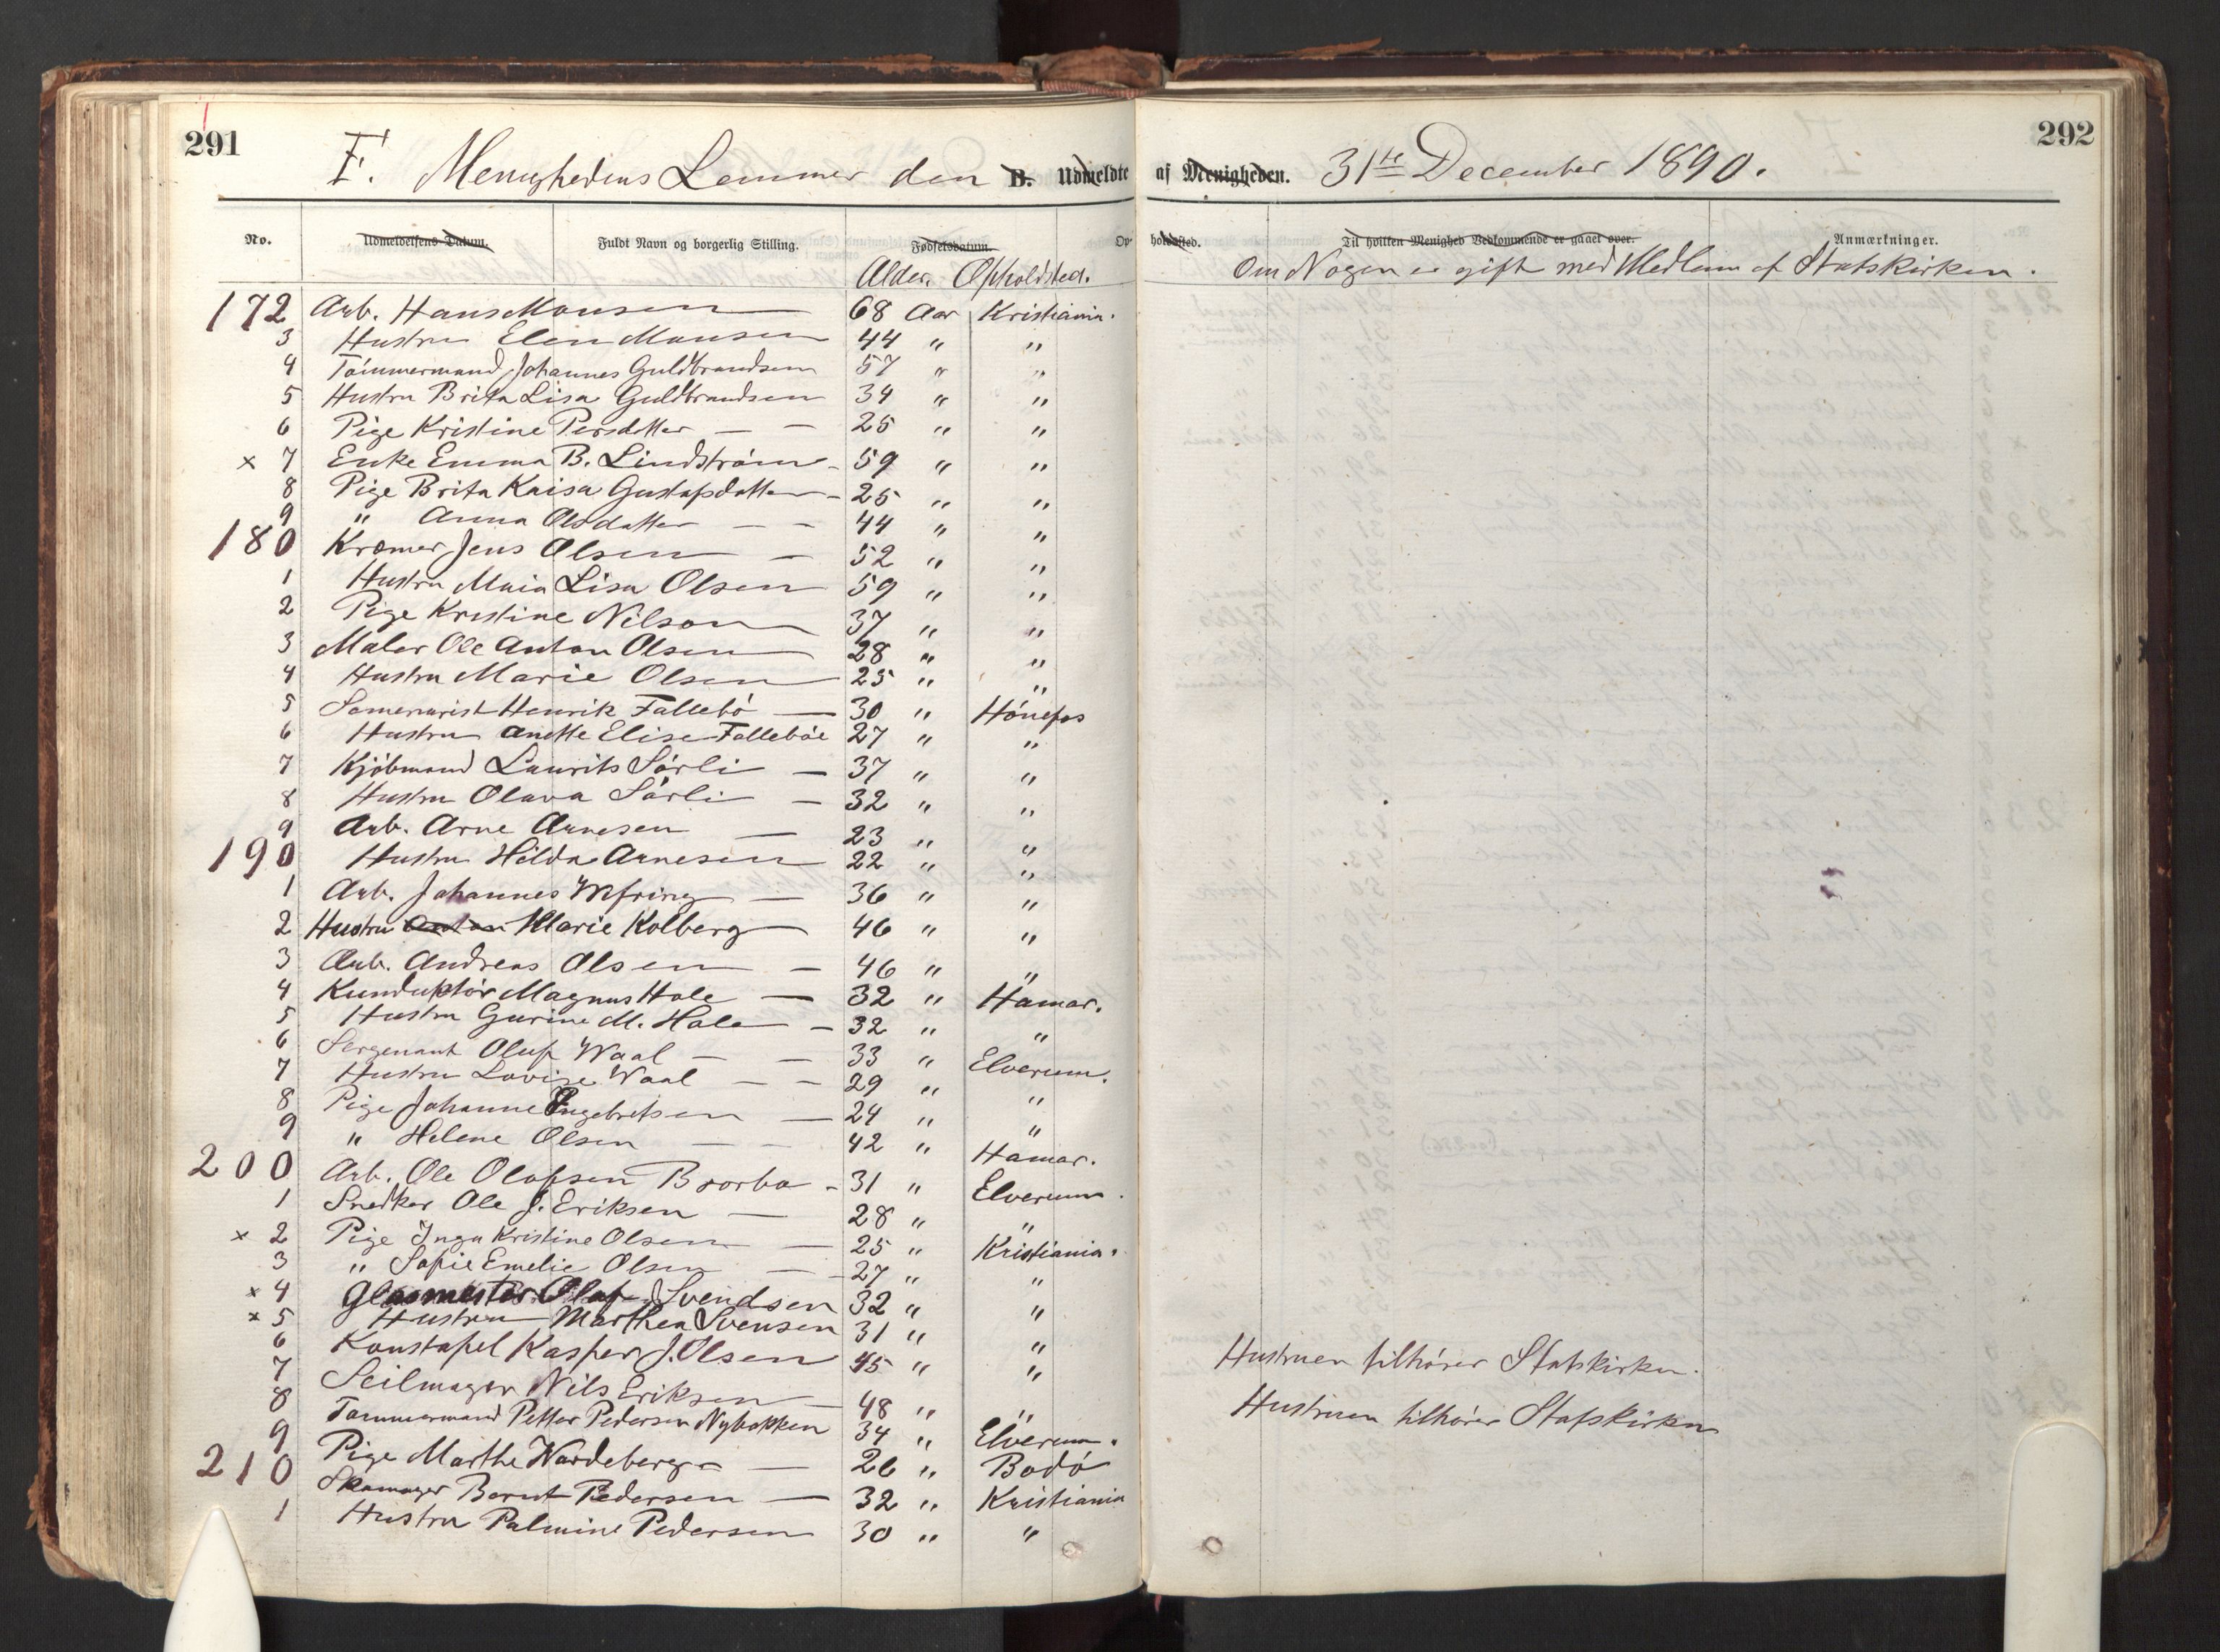 291
292
F. Menighedens Lemmer den B. Udmeldte af Menigheden. 31te December 1890.
No. Udmeldelsens Datum. Fuldt Navn og borgerlig Stilling. Fødselsdatum. Opholdssted. Til hvilken Menighed Vedkommende er gaaet over. Anmærkninger.
Alder. Opholdsted. Om Nogen er gift med Medlem af Statskirken.
172 Arb. Hans Monsen 68 Aar Kristiania.
3 Hustru Elen Monsen 44 " "
4 Tömmermand Johannes Guldbrandsen 57 " "
5 Hustru Brita Lisa Guldbrandsen 34 " "
6 Pige Kristine Persdatter — — 25 " "
x 7 Enke Emma B. Lindström - 59 " "
8 Pige Brita Kaisa Gustafsdatter - 25 " "
9 " Anna Olsdatter — — 44 " "
180 Kræmer Jens Olsen — 52 " "
1 Hustru Maia Lisa Olsen 59 " "
2 Pige Kristine Nilson 37 " "
3 Maler Ole Anton Olsen 28 " "
4 Hustru Marie Olsen 25 " "
5 Henrik Fallebö — 30 " Hönefos
6 Hustru Anette Elise Falleböe 27 " "
7 Kjöbmand Laurits Sörli — 37 " "
8 Hustru Olava Sörli — 32 " "
9 Arb. Arne Arnesen — 23 " "
190 Hustru Hilda Arnesen 22 " "
1 Arb. Johannes — 36 " "
2 Hustru Marie Kolberg 46 " "
3 Arb. Andreas Olsen — 46 " "
4 Kunduktör Magnus Hole — 32 " Hamar.
5 Hustru Gurine M. Hole — 32 " "
6 Sergenant Oluf Waal — — 33 " Elverum.
7 Hustru Lovise Waal — — 29 " "
8 Pige Johanne Ingebretsen — 24 " "
9 " Helene Olsen — — 42 " Hamar.
200 Arb. Ole Olafsen - 31 " Elverum.
1 Snedker Ole J. Eriksen — 28 " "
x 2 Pige Inga Kristine Olsen — 25 " Kristiania.
3 " Sofie Emelie Olsen — 27 " "
x 4 Glasmester Olaf J Svendsen 32 " "
x 5 Hustru Marthea Svensen 31 " "
6 Konstapel Kasper J. Olsen 45 " " Hustruen tilhörer Statskirken.
7 Seilmager Nils Eriksen — 48 " " Hustruen tilhörer Statskirken
8 Tømmermand Petter Pedersen Nybakken 34 " Elverum.
9 Pige Marthe Wardeberg — 26 " Bodö
210 Skomager Bernt Pedersen — 32 " Kristiania
1 Hustru Palmine Pedersen 30 " "